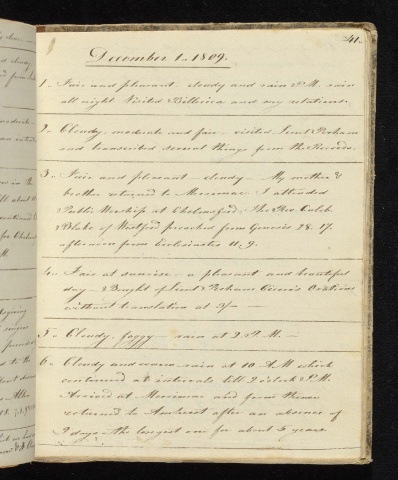 41.
December 1. 1809.
1. Fair and pleasant - cloudy and rain P.M. rain
all night. Visited Billerica and my relations.
2. Cloudy, moderate and fair - visited Lieut Perham
and transcribed several things from the Records.
3. Fair and pleasant - cloudy - My mother &
brother returned to Merrimac. I attended
Public Worship at Chelmsford, The Rev. Caleb
Blake of Westford preached from Genesis 28. 17.
afternoon from Ecclesiastes 11. 9.
4. Fair at sunrise - a pleasant and beautiful
day - Bought of Lieut Perham Cicero's Orations
without translation at 3/ -
5. Cloudy, foggy - rain at 2 P.M. -
6. Cloudy and warm rain at 10 A.M which
continued at intervals till 2 o'clock P.M.
Arrived at Merrimac and from thence
returned to Amherst after an absence of
9 days - the longest one for about 3 years